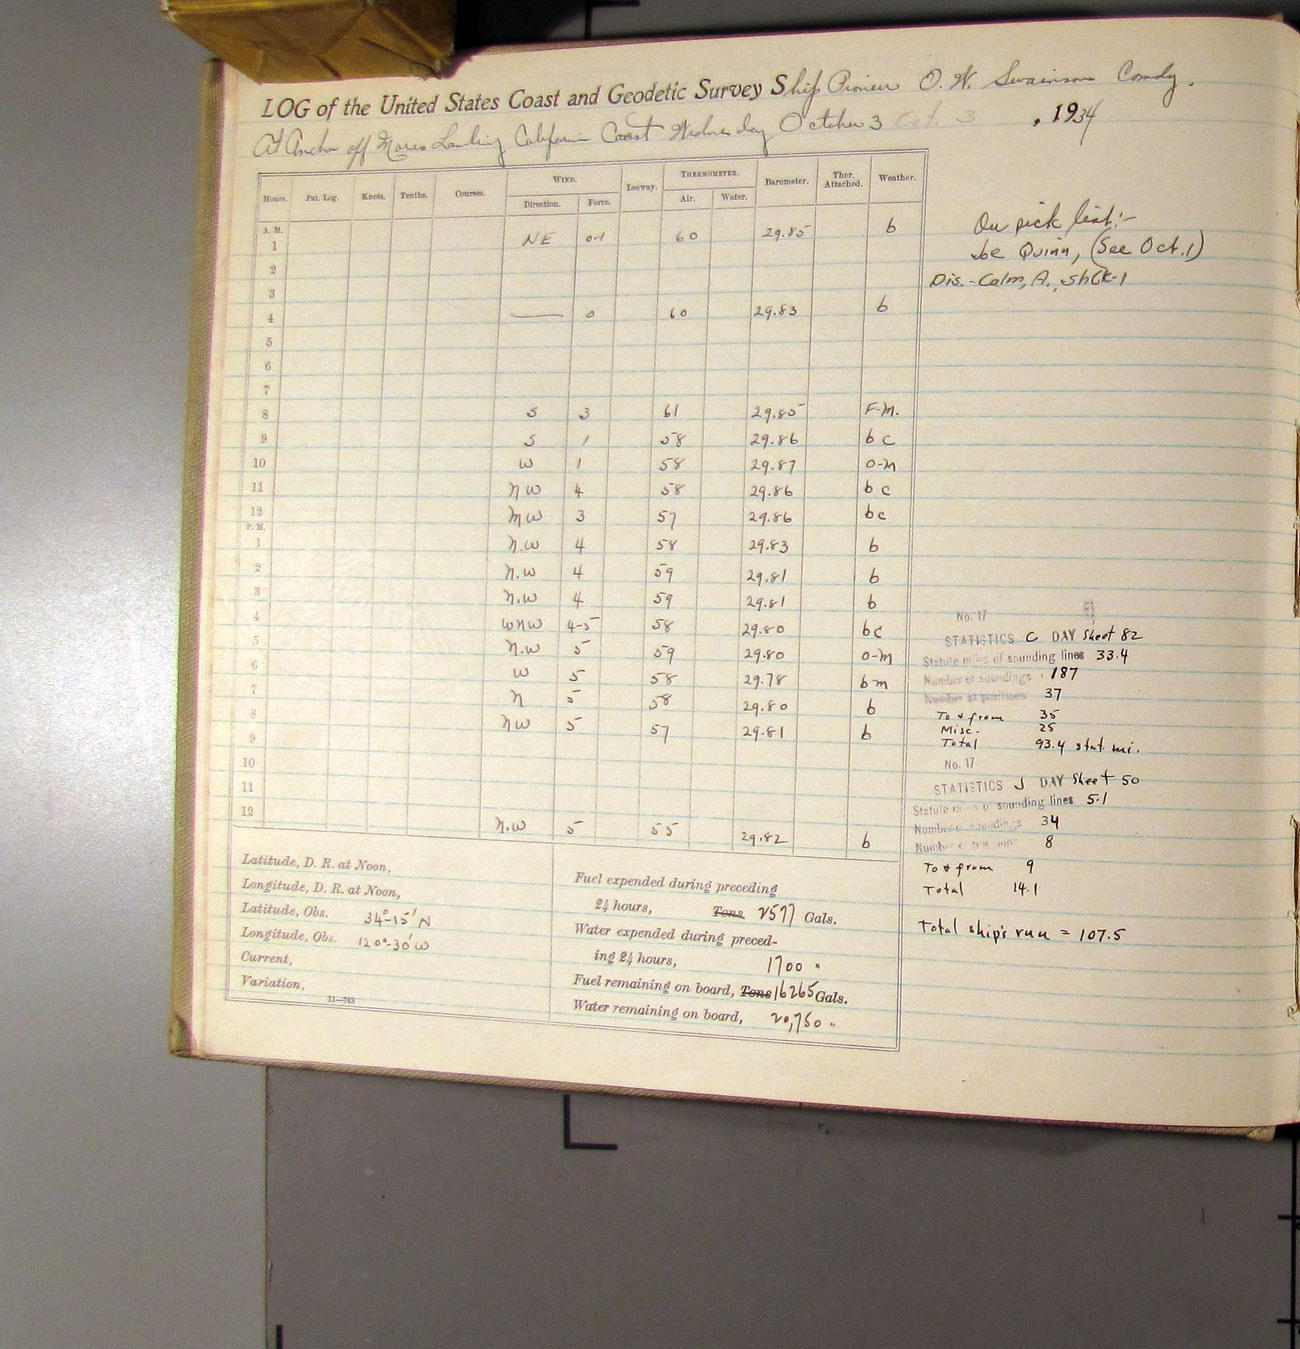 LOG of the United States Coast and Geodetic Survey Ship Pioneer O. W. Swainson Comdg.
At Anchor off Landing California Coast Wednesday October 3 Oct. 3 , 1934
Hours. Pat. Log. Knots. Tenths. Courses. WIND. Direction. Force. Leeway. THERMOMETER. Air. Water. Barometer. Ther. Attached. Weather.
A. M.
1 NE 0-1 60 29.85 b
2
3
4 — 0 60 29.83 b
5
6
7
8 S 3 61 29.85 F-M.
9 S 1 58 29.86 b c
10 W 1 58 29.87 o-m
11 NW 4 58 29.86 b c
12 NW 3 57 29.86 bc
P. M.
1 N.W 4 58 29.83 b
2 N.W 4 59 29.81 b
3 N.W 4 59 29.81 b
4 WNW 4-5 58 29.80 bc
5 N.W 5 59 29.80 o-m
6 W 5 58 29.78 bm
7 N 5 58 29.80 b
8 NW 5 57 29.81 b
9
10
11
12 N.W 5 55 29.82 b
Latitude, D. R. at Noon,
Longitude, D. R. at Noon,
Latitude, Obs. 34°-15' N
Longitude, Obs. 120°-30' W
Current,
Variation,
11—743
Fuel expended during preceding
24 hours, Tons 2577 Gals.
Water expended during preced-
ing 24 hours, 1700 "
Fuel remaining on board, Tons 16265 Gals.
Water remaining on board, 20,750 "
On sick list:-
Quinn, (See Oct. 1)
Dis.-
No. 17
STATISTICS C DAY Sheet 82
Statute miles of sounding lines 33.4
Number of soundings 187
Number of positions 37
To & from 35
Misc. 25
Total 93.4 stat. mi.
No. 17
STATISTICS J DAY Sheet 50
Statute miles of sounding lines 5.1
Number of soundings 34
Number of positions 8
To & from 9
Total 14.1
Total ship's run = 107.5